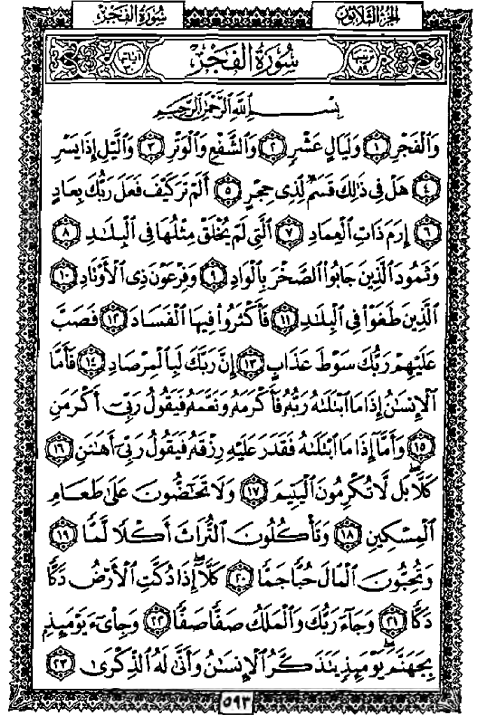 سُورَةُ الفَجْرِ
الجُزْءُ الثَّلَاثُونَ
سُورَةُ الفَجْرِ
وَالْفَجْرِ ١ وَلَيَالٍ عَشْرٍ ٢ وَالشَّفْعِ وَالْوَتْرِ ٣ وَالَّيْلِ إِذَا يَسْرِ
٤ هَلْ فِي ذَٰلِكَ قَسَمٌ لِّذِي حِجْرٍ ٥ أَلَمْ تَرَ كَيْفَ فَعَلَ رَبُّكَ بِعَادٍ
٦ إِرَمَ ذَاتِ الْعِمَادِ ٧ الَّتِي لَمْ يُخْلَقْ مِثْلُهَا فِي الْبِلَٰدِ ٨
وَثَمُودَ الَّذِينَ جَابُوا الصَّخْرَ بِالْوَادِ ٩ وَفِرْعَوْنَ ذِي الْأَوْتَادِ ١٠
الَّذِينَ طَغَوْا فِي الْبِلَٰدِ ١١ فَأَكْثَرُوا فِيهَا الْفَسَادَ ١٢ فَصَبَّ
عَلَيْهِمْ رَبُّكَ سَوْطَ عَذَابٍ ١٣ إِنَّ رَبَّكَ لَبِالْمِرْصَادِ ١٤ فَأَمَّا
الْإِنسَٰنُ إِذَا مَا ابْتَلَىٰهُ رَبُّهُ فَأَكْرَمَهُ وَنَعَّمَهُ فَيَقُولُ رَبِّي أَكْرَمَنِ
١٥ وَأَمَّا إِذَا مَا ابْتَلَىٰهُ فَقَدَرَ عَلَيْهِ رِزْقَهُ فَيَقُولُ رَبِّي أَهَٰنَنِ ١٦
كَلَّا بَل لَّا تُكْرِمُونَ الْيَتِيمَ ١٧ وَلَا تَحَٰضُّونَ عَلَىٰ طَعَامِ
الْمِسْكِينِ ١٨ وَتَأْكُلُونَ التُّرَاثَ أَكْلًا لَّمًّا ١٩
وَتُحِبُّونَ الْمَالَ حُبًّا جَمًّا ٢٠ كَلَّا إِذَا دُكَّتِ الْأَرْضُ دَكًّا
دَكًّا ٢١ وَجَاءَ رَبُّكَ وَالْمَلَكُ صَفًّا صَفًّا ٢٢ وَجِايءَ يَوْمَئِذٍ
بِجَهَنَّمَ يَوْمَئِذٍ يَتَذَكَّرُ الْإِنسَٰنُ وَأَنَّىٰ لَهُ الذِّكْرَىٰ ٢٣
٥٩٣